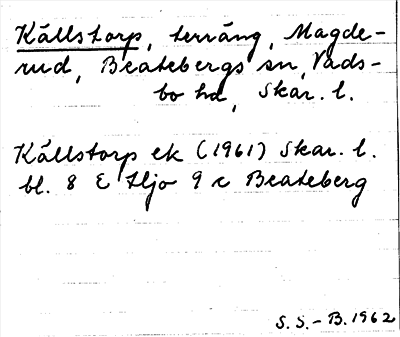 Källstorp, terräng, Magde-
rud, Beatebergs sn, Vads-
bo hd, Skar. l.
Källstorp ek (1961) Skar. l.
bl. 8 E Hjo 9 c Beateberg
S. S. - B. 1962